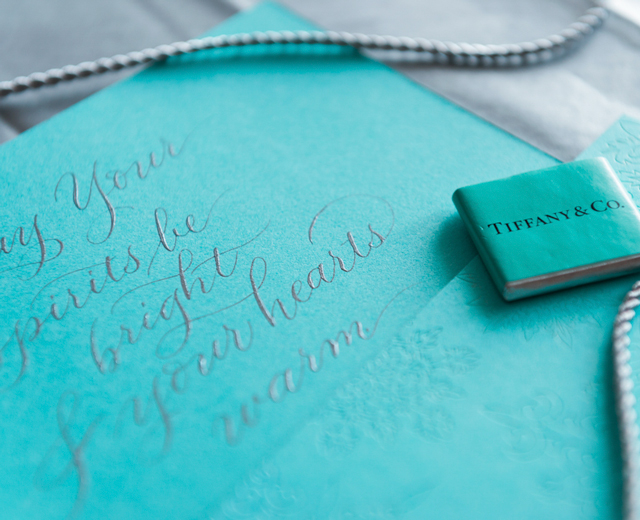 ay Your
spirits be
bright
& your hearts
warm
TIFFANY & CO.